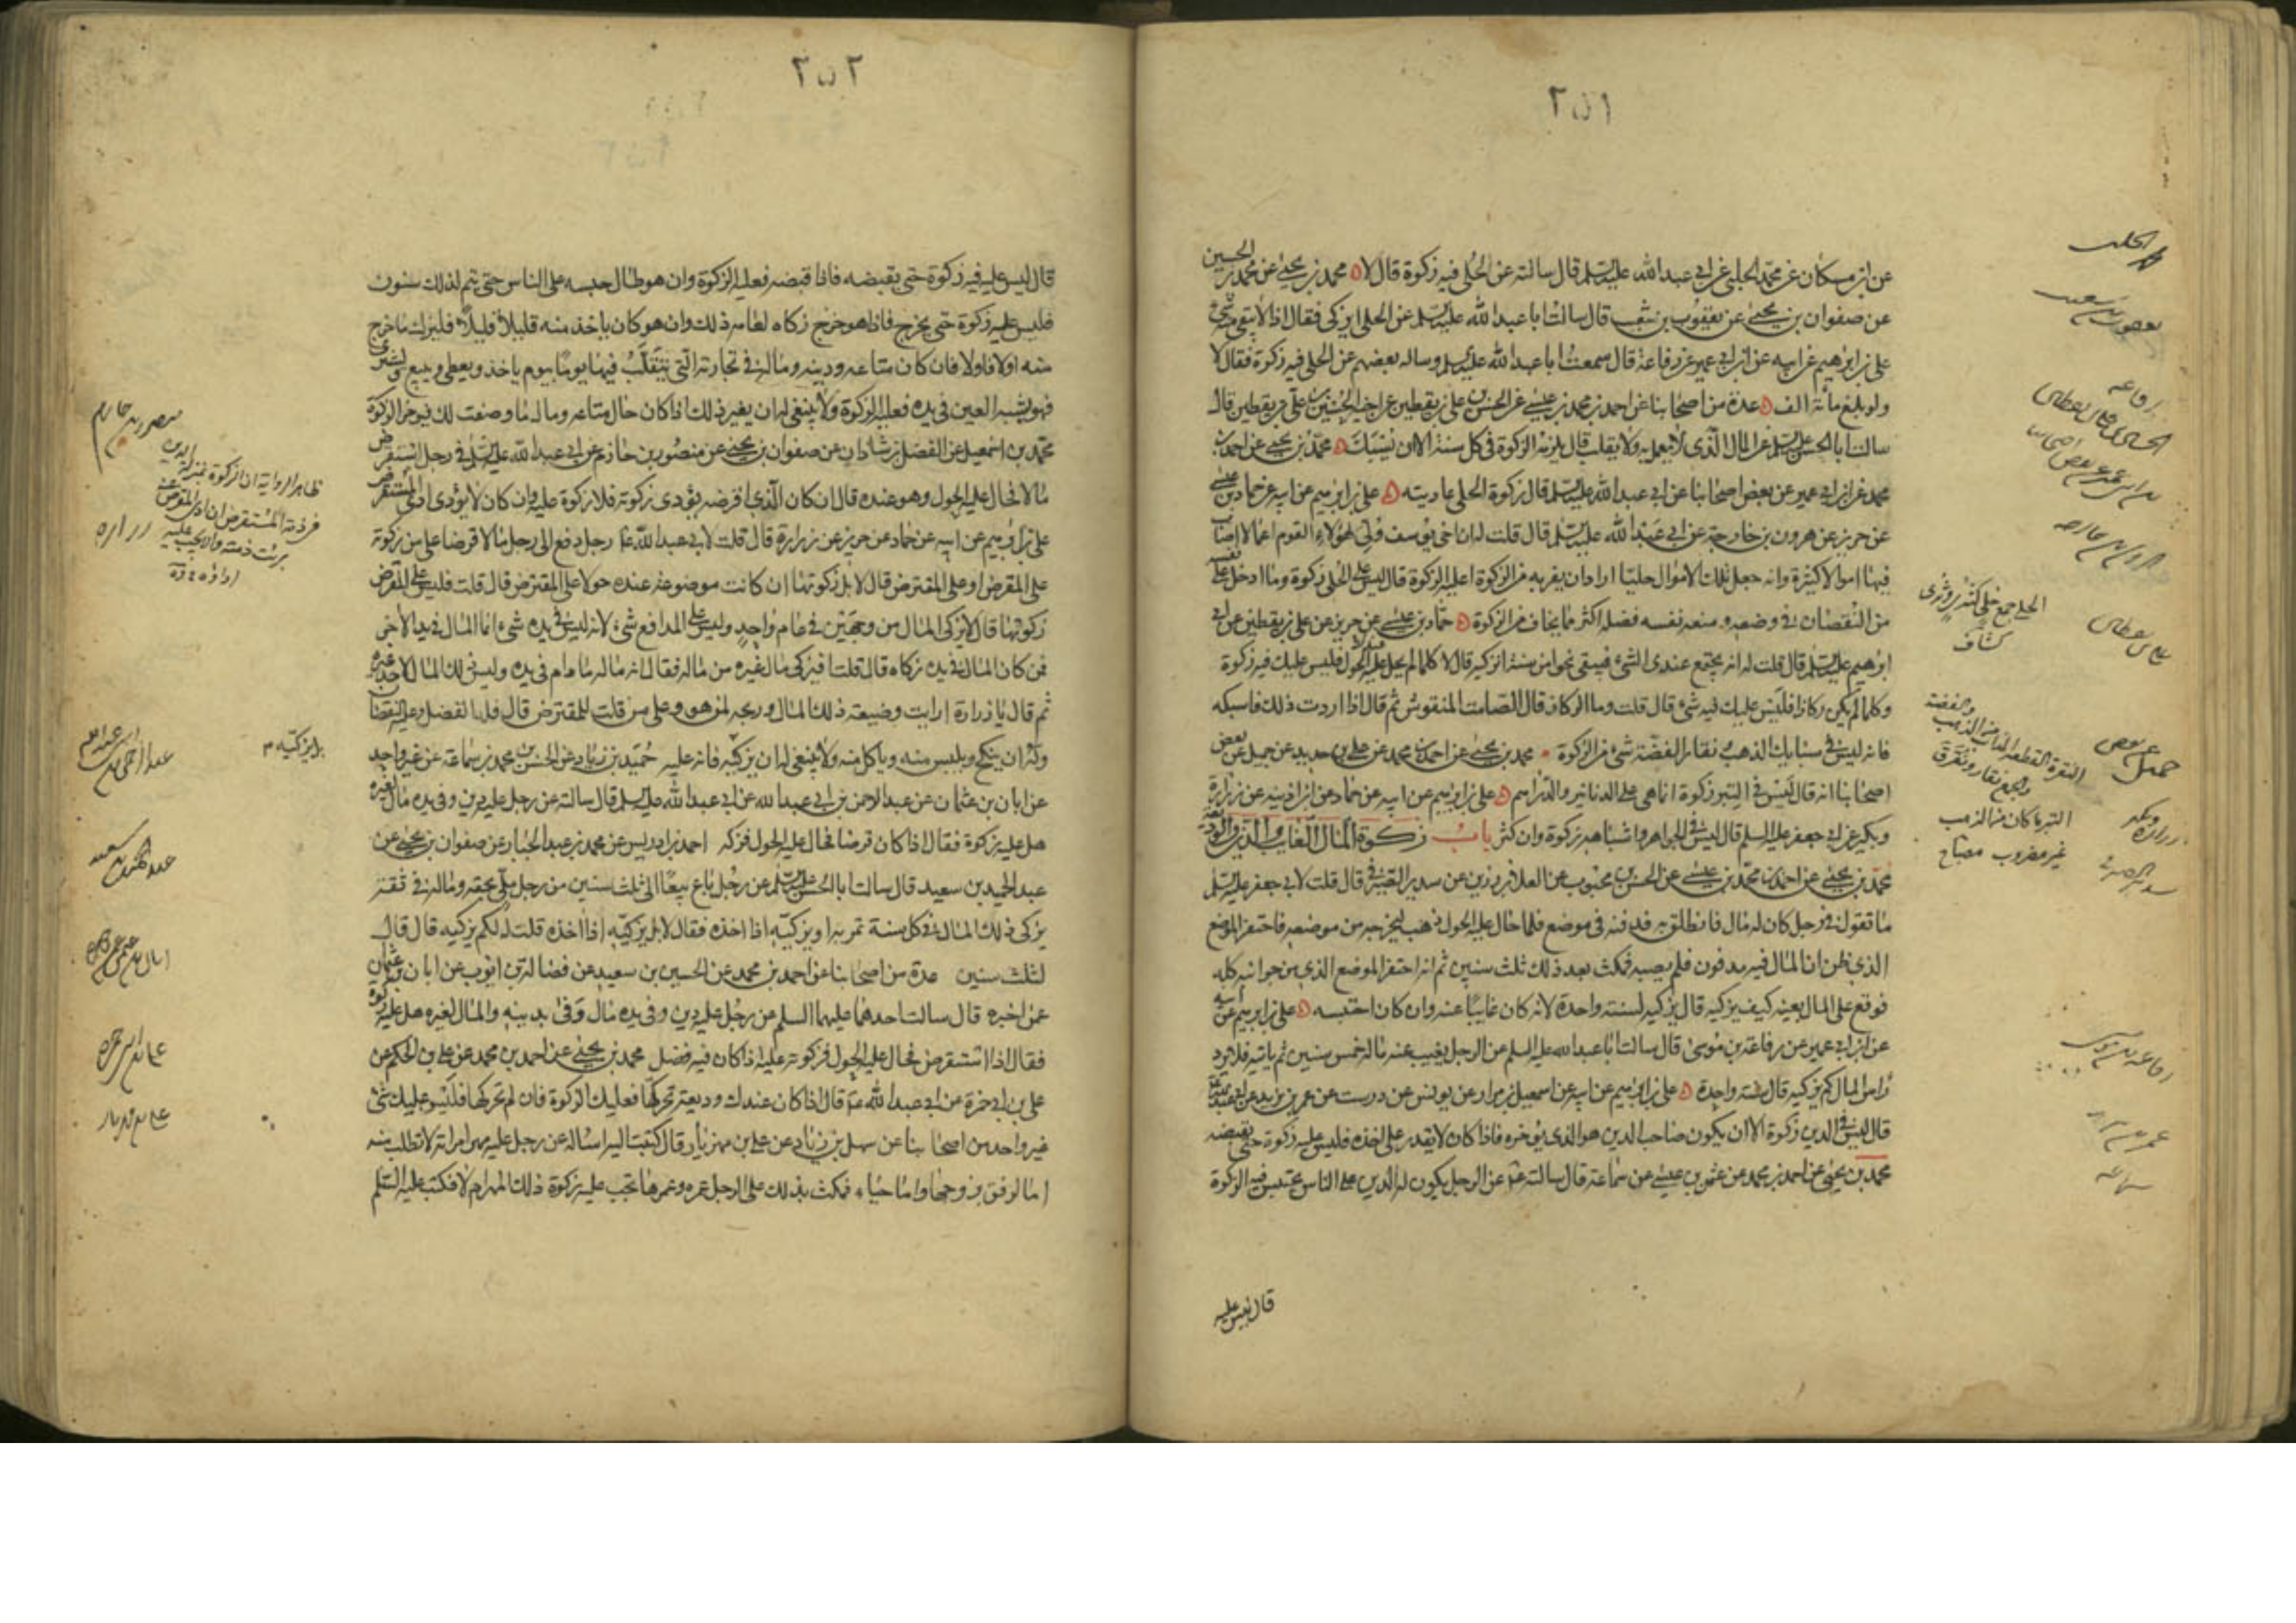 ٢٥١
عن ابن مسكان عن محمد الحلبي عن ابي عبد الله عليه السلم قال سالته عن الحلي فيه زكوة قال لا محمد بن يحيى عن محمد بن الحسين
عن صفوان بن يحيى عن يعقوب بن شعيب قال سالت ابا عبد الله عليه السلم عن الحلي ايزكى فقال اذا لا يبقى منه شئ
علي بن ابرهيم عن ابيه عن ابن ابي عمير عن رفاعة قال سمعت ابا عبد الله عليه السلم وساله بعضهم عن الحلي فيه زكوة فقال لا
ولو بلغ مائة الف عدة من اصحابنا عن احمد بن محمد بن عيسى عن الحسن بن علي بن يقطين عن اخيه الحسين عن علي بن يقطين قال
سالت ابا الحسن عليه السلم عن المال الذي لا يعمل به ولا يقلب قال يلزمه الزكوة في كل سنة الا ان يسبك محمد بن يحيى عن احمد بن
محمد عن ابن ابي عمير عن بعض اصحابنا عن ابي عبد الله عليه السلم قال زكوة الحلي عاريته علي بن ابرهيم عن ابيه عن حماد بن عيسى
عن حريز عن هرون بن خارجة عن ابي عبد الله عليه السلم قال قلت له ان اخي يوسف ولي لهؤلاء القوم اعمالا اصاب
فيها اموالا كثيرة وانه جعل تلك الاموال حليا اراد ان يفر به من الزكوة اعليه الزكوة قال ليس على الحلي زكوة وما ادخل على نفسه
من النقصان في وضعه ومنعه نفسه فضله اكثر مما يخاف من الزكوة حماد بن عيسى عن حريز عن علي بن يقطين عن ابي
ابرهيم عليه السلم قال قلت له انه يجتمع عندي الشئ فيبقى نحوا من سنة انزكيه قال لا كلما لم يحل عليه الحول فليس عليك فيه زكوة
وكلما لم يكن ركازا فليس عليك فيه شئ قال قلت وما الركاز قال الصامت المنقوش ثم قال اذا اردت ذلك فاسبكه
فانه ليس في سبايك الذهب ونقار الفضة شئ من الزكوة محمد بن يحيى عن احمد بن محمد عن علي بن حديد عن جميل عن بعض
اصحابنا انه قال ليس في التبر زكوة انما هي على الدنانير والدراهم علي بن ابرهيم عن ابيه عن حماد عن ابن اذينه عن زرارة
وبكير عن ابي جعفر عليه السلم قال ليس في الجواهر واشباهه زكوة وان كثر باب زكوة المال الغايب والدين والوديعة
محمد بن يحيى عن احمد بن محمد بن عيسى عن الحسن بن محبوب عن العلا بن رزين عن سدير الصيرفي قال قلت لابي جعفر عليه السلم
ما تقول في رجل كان له مال فانطلق به فدفنه في موضع فلما حال عليه الحول ذهب ليخرجه من موضعه فاحتفر الموضع
الذي ظن ان المال فيه مدفون فلم يصبه فمكث بعد ذلك ثلث سنين ثم انه احتفر الموضع الذي من جوانبه كله
فوقع على المال بعينه كيف يزكيه قال يزكيه لسنة واحدة لانه كان غايبا عنه وان كان احتبسه علي بن ابرهيم عن ابيه
عن ابن ابي عمير عن رفاعة بن موسى قال سالت ابا عبد الله عليه السلم عن الرجل يغيب عنه ماله خمس سنين ثم ياتيه فلا يرد
راس المال كم يزكيه قال سنة واحدة علي بن ابرهيم عن ابيه عن اسمعيل بن مرار عن يونس عن درست عن عمر بن يزيد عن ابي عبد الله
قال ليس في الدين زكوة الا ان يكون صاحب الدين هو الذي يؤخره فاذا كان لا يقدر على اخذه فليس عليه زكوة حتى يقبضه
محمد بن يحيى عن احمد بن محمد عن عثمن بن عيسى عن سماعة قال سالته عن الرجل يكون له الدين على الناس يحتبس فيه الزكوة
قال ليس عليه
الحلي جمع حلي كثدي وثدي
كشاف
النقرة القطعة المذابة من الذهب والفضة
والجمع نقار
التبر ما كان من الذهب
غير مضروب مصباح
٢٥٢
قال ليس عليه فيه زكوة حتى يقبضه فاذا قبضه فعليه الزكوة وان هو طال حبسه على الناس حتى يتم لذلك سنون
فليس عليه زكوة حتى يخرج فاذا هو خرج زكاه لعامه ذلك وان هو كان ياخذ منه قليلا قليلا فليزك ما خرج
منه اولا فاولا فان كان متاعه ودينه وماله في تجارته التي يتقلب فيها يوما بيوم ياخذ ويعطي ويبيع ويشتري
فهو يشبه العين في يده فعليه الزكوة ولا ينبغي له ان يغير ذلك اذا كان حال متاعه وماله ما وصفت لك فيؤخر الزكوة
محمد بن اسمعيل عن الفضل بن شاذان عن صفوان بن يحيى عن منصور بن حازم عن ابي عبد الله عليه السلم في رجل استقرض
مالا فحال عليه الحول وهو عنده قال ان كان الذي اقرضه يؤدي زكوته فلا زكوة عليه وان كان لا يؤدي ادى المستقرض
علي بن ابرهيم عن ابيه عن حماد عن حريز عن زرارة قال قلت لابي عبد الله رجل دفع الى رجل مالا قرضا على من زكوته
على المقرض او على المقترض قال لا بل زكوتها ان كانت موضوعة عنده حولا على المقترض قال قلت فليس على المقرض
زكوتها قال لا يزكى المال من وجهين في عام واحد وليس على الدافع شئ لانه ليس في يده شئ انما المال في يد الاخر
فمن كان المال في يده زكاه قال قلت افيزكي مال غيره من ماله فقال انه ماله ما دام في يده وليس ذلك المال لاحد غيره
ثم قال يا زرارة ارايت وضيعة ذلك المال وربحه لمن هو وعلى من قلت للمقترض قال فله الفضل وعليه النقصان
وله ان ينكح ويلبس منه وياكل منه ولا ينبغي له ان يزكيه فانه عليه حميد بن زياد عن الحسن بن محمد بن سماعة عن غير واحد
عن ابان بن عثمان عن عبد الرحمن بن ابي عبد الله عن ابي عبد الله عليه السلم قال سالته عن رجل عليه دين وفي يده مال لغيره
هل عليه زكوة فقال اذا كان قرضا فحال عليه الحول فزكه احمد بن ادريس عن محمد بن عبد الجبار عن صفوان بن يحيى عن
عبد الحميد بن سعيد قال سالت ابا الحسن عليه السلم عن رجل باع بيعا الى ثلث سنين من رجل ملي بحقه وماله في ثقة
يزكي ذلك المال في كل سنة تمر به او يزكيه اذا اخذه فقال لا بل يزكيه اذا اخذه قلت له لكم يزكيه قال قال
لثلث سنين عدة من اصحابنا عن احمد بن محمد عن الحسين بن سعيد عن فضالة بن ايوب عن ابان بن عثمان
عمن اخبره قال سالت احدهما عليهما السلم عن رجل عليه دين وفي يده مال وفى بدينه والمال لغيره هل عليه زكوة
فقال اذا استقرض فحال عليه الحول فزكوته عليه اذا كان فيه فضل محمد بن يحيى عن احمد بن محمد عن علي بن الحكم عن
علي بن ابي حمزة عن ابي عبد الله قال اذا كان عندك وديعة تحركها فعليك الزكوة فان لم تحركها فليس عليك شئ
غير واحد من اصحابنا عن سهل بن زياد عن علي بن مهزيار قال كتبت اليه اساله عن رجل عليه مهر امراته لا تطلبه منه
اما لرفق بزوجها واما حياء فمكث بذلك على الرجل عمره وعمرها تجب عليه زكوة ذلك المهر ام لا فكتب عليه السلم
ظاهر الرواية ان الزكوة بمنزلة الدين
برئت ذمته والا يجب عليه
زراره
بل يزكيه م